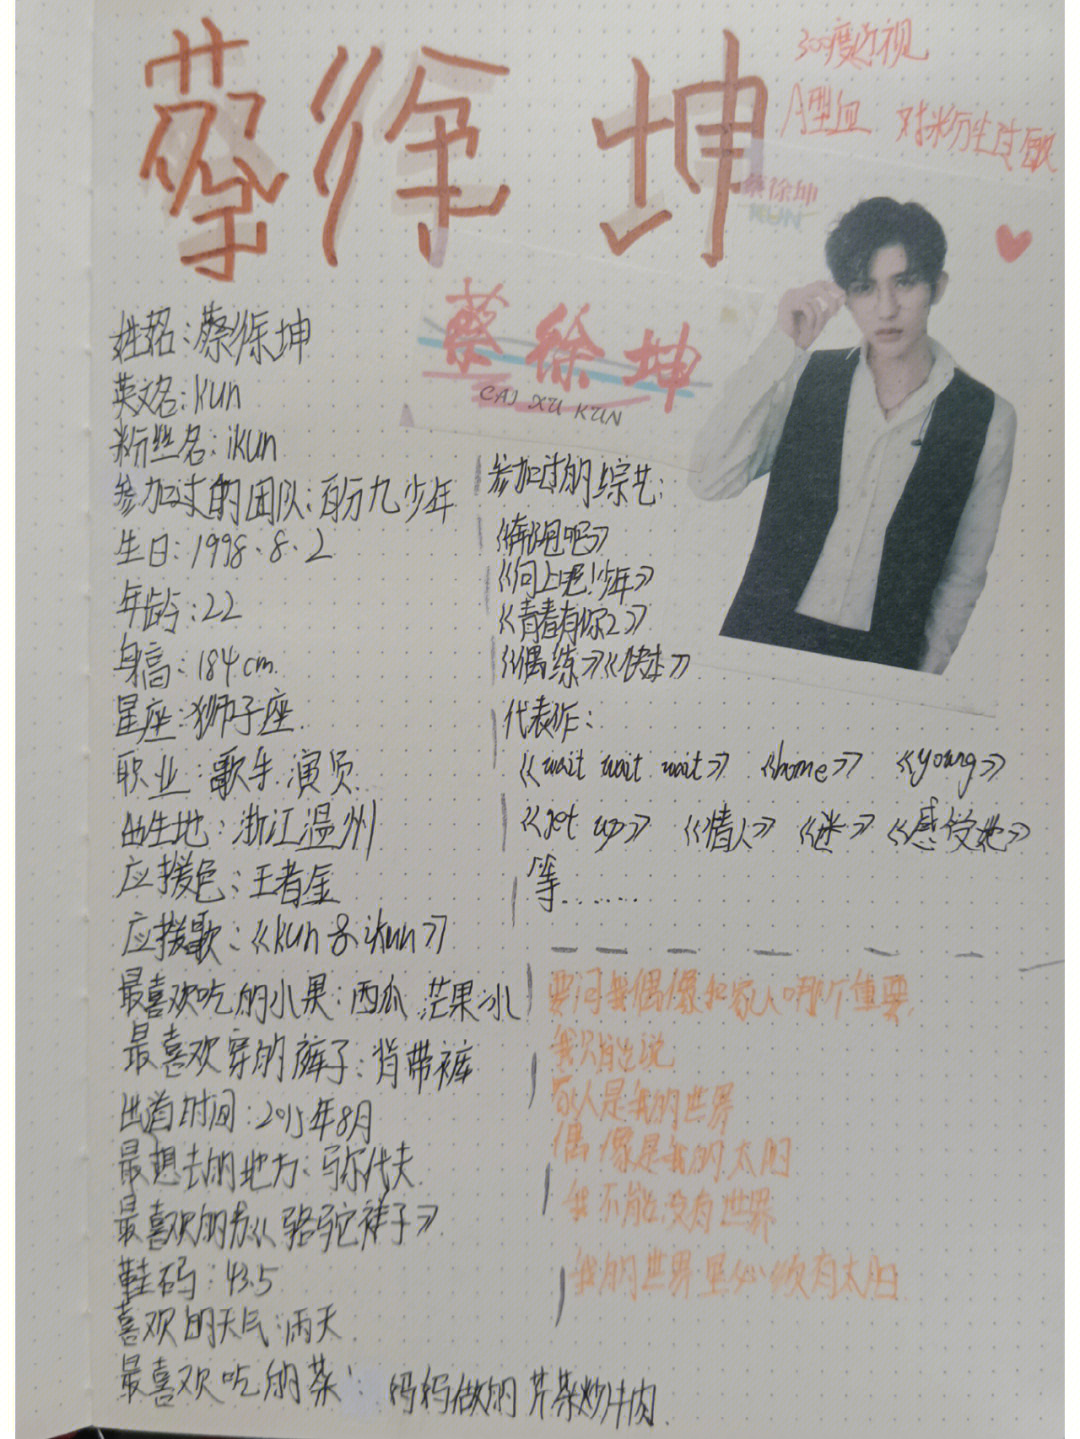 蔡徐坤
300度近视
A型血 对粉尘过敏
蔡徐坤
KUN
蔡徐坤
CAI XU KUN
姓名:蔡徐坤
英文名:kun
粉丝名:ikun
参加过的团队:百分九少年
生日:1998.8.2
年龄:22
身高:184cm
星座:狮子座
职业:歌手 演员
出生地:浙江温州
应援色:王者金
应援歌:《kun & ikun》
最喜欢吃的水果:西瓜 芒果冰
最喜欢穿的裤子:背带裤
出道时间:2015年8月
最想去的地方:马尔代夫
最喜欢的书《骆驼祥子》
鞋码:43.5
喜欢的天气:雨天
最喜欢吃的菜:妈妈做的芹菜炒牛肉
参加过的综艺:
《奔跑吧》
《向上吧!少年》
《青春有你2》
《偶练》《快本》
代表作:
《wait wait wait》 《home》 《young》
《get up》 《情人》 《迷》 《感受她》
等........
要问我偶像和家人哪个重要
我只能说
家人是我的世界
偶像是我的太阳
我不能没有世界
我的世界里必须有太阳